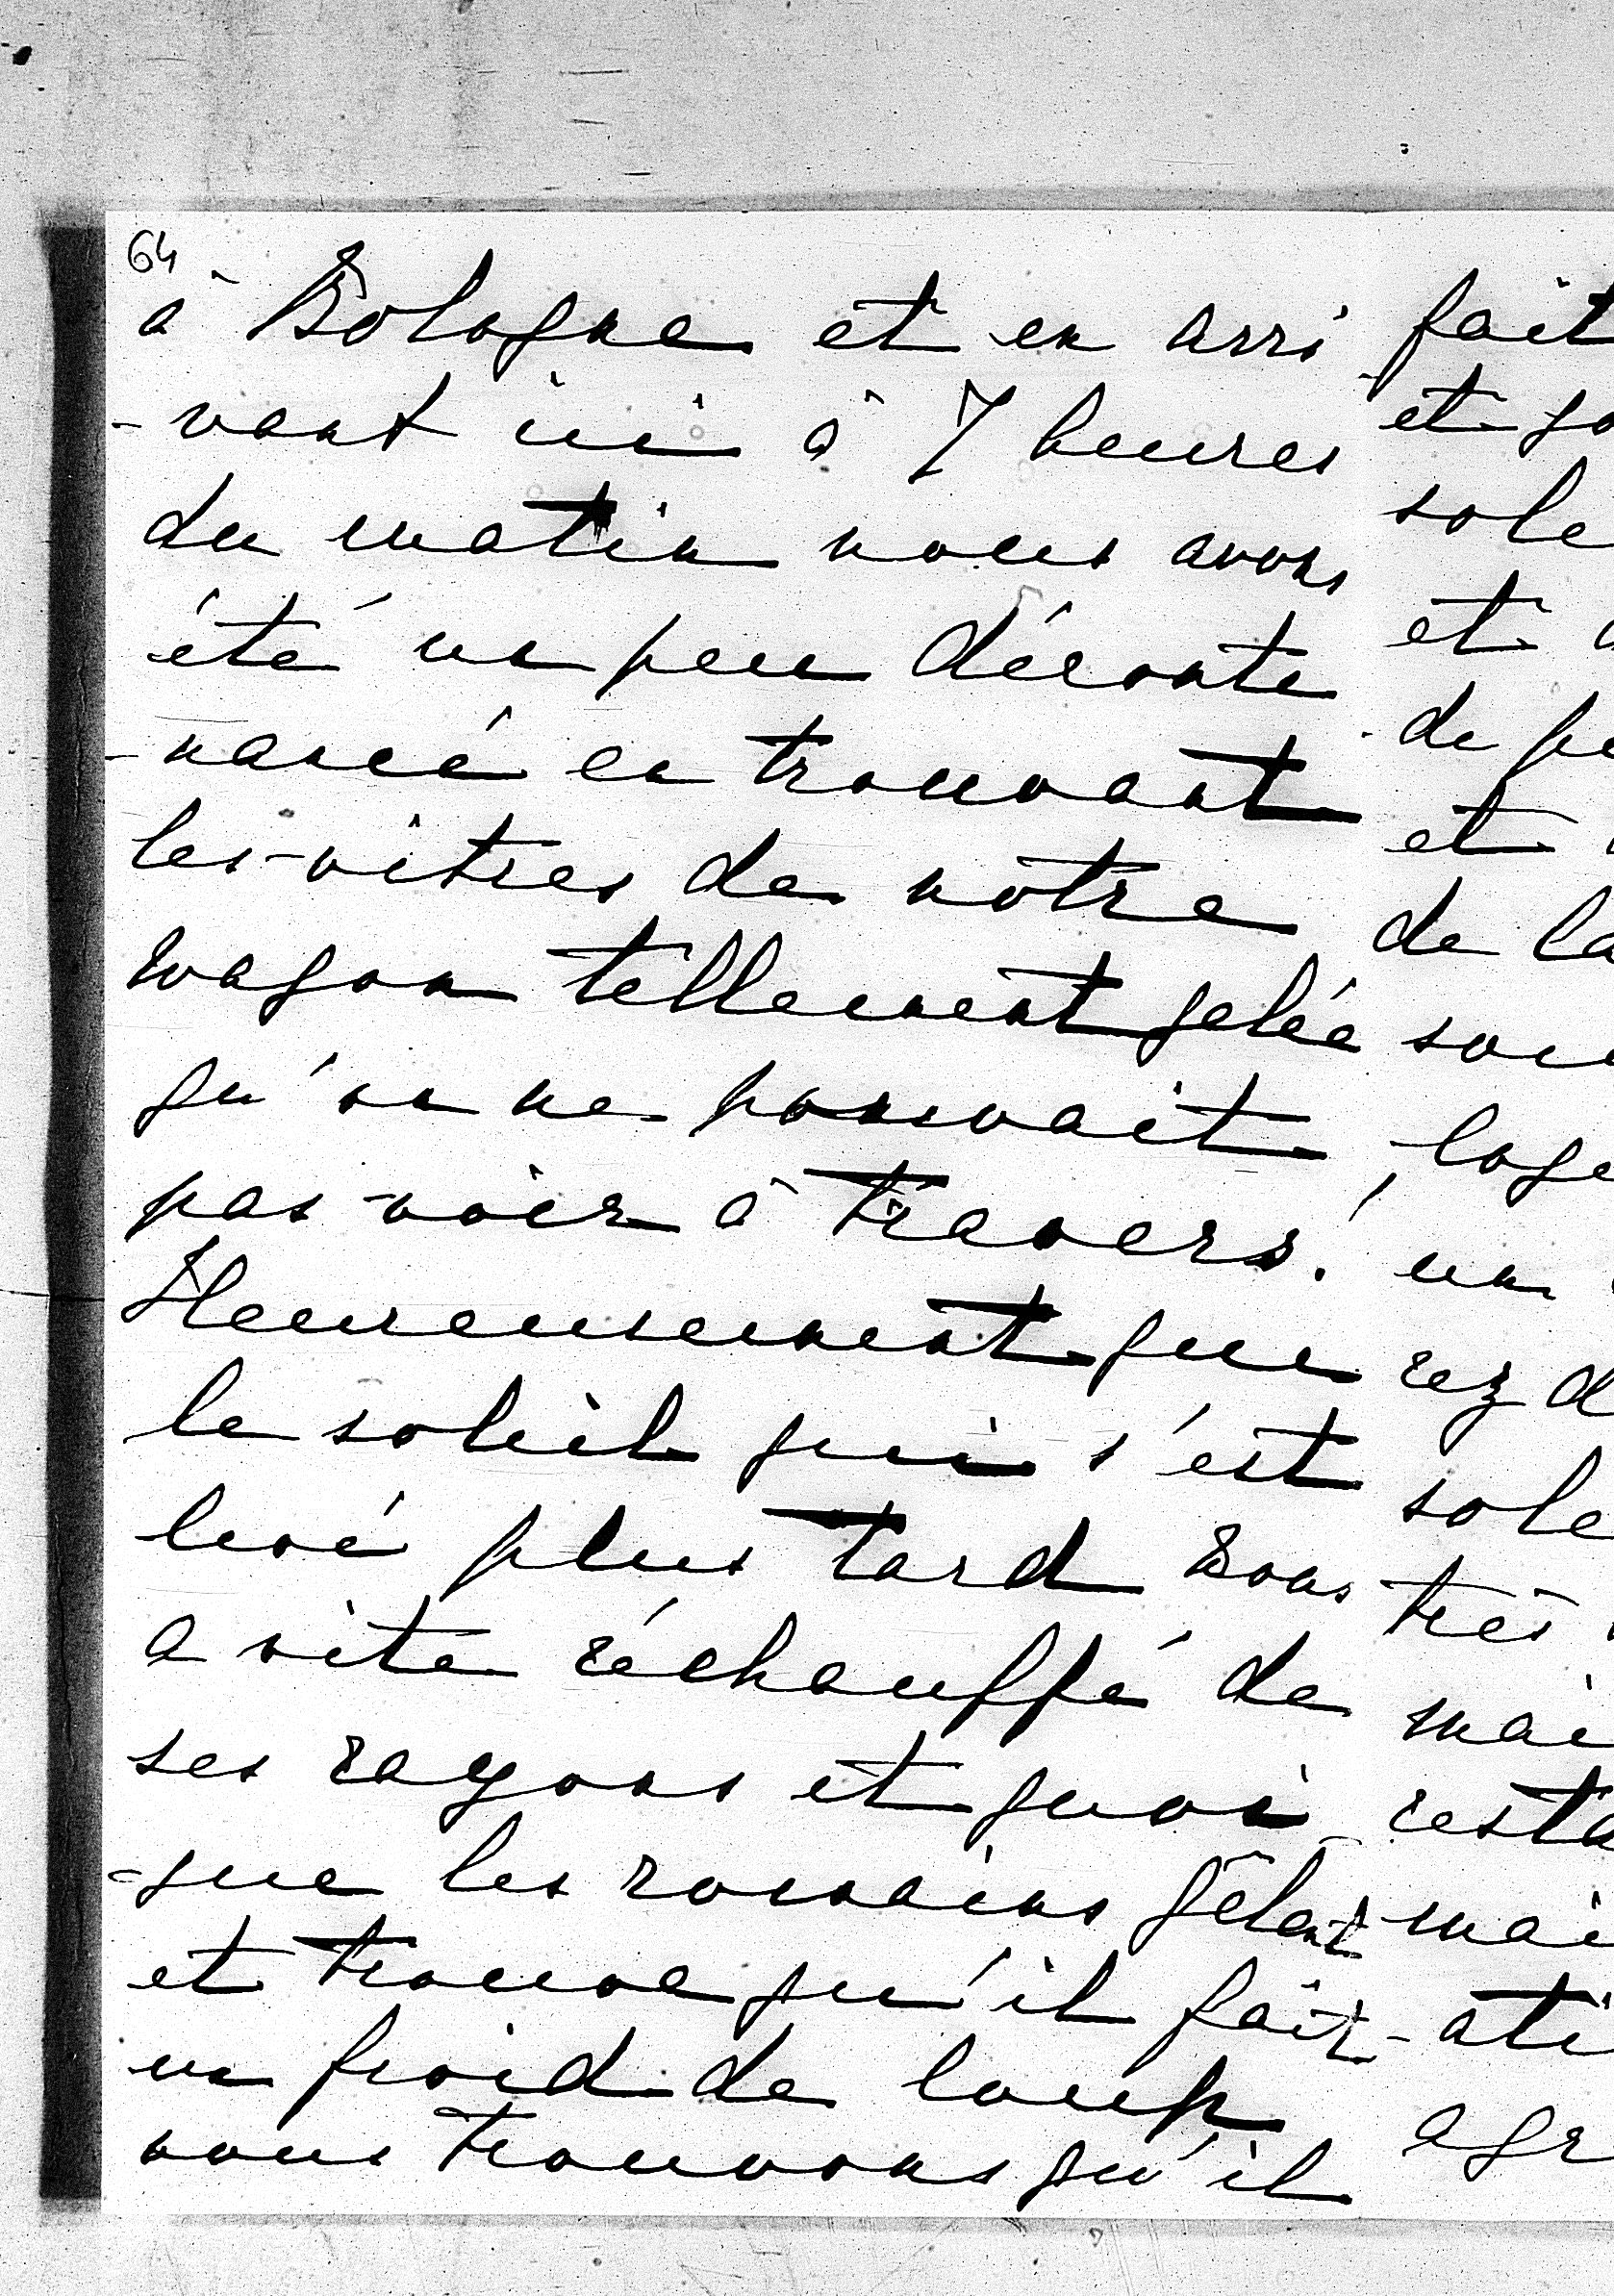 64
à Bologne et en arri
-vant ici à 7 heures
du matin nous avons
été un peu déconte
-nancé en trouvant
les vitres de notre
wagon tellement gelée
qu'on ne pouvait
pas voir à travers!
Heureusement que
le soleil qui s'est
levé plus tard nous
a vite réchauffé de
ses rayons et quoi
-que les romains gêlent
et trouve qu'il fait
un froid de loup
nous trouvons qu'il
fait
et
sole
et
de
et
de la
un
rez d
sole
très
mai
resta
mai
-ati
agr